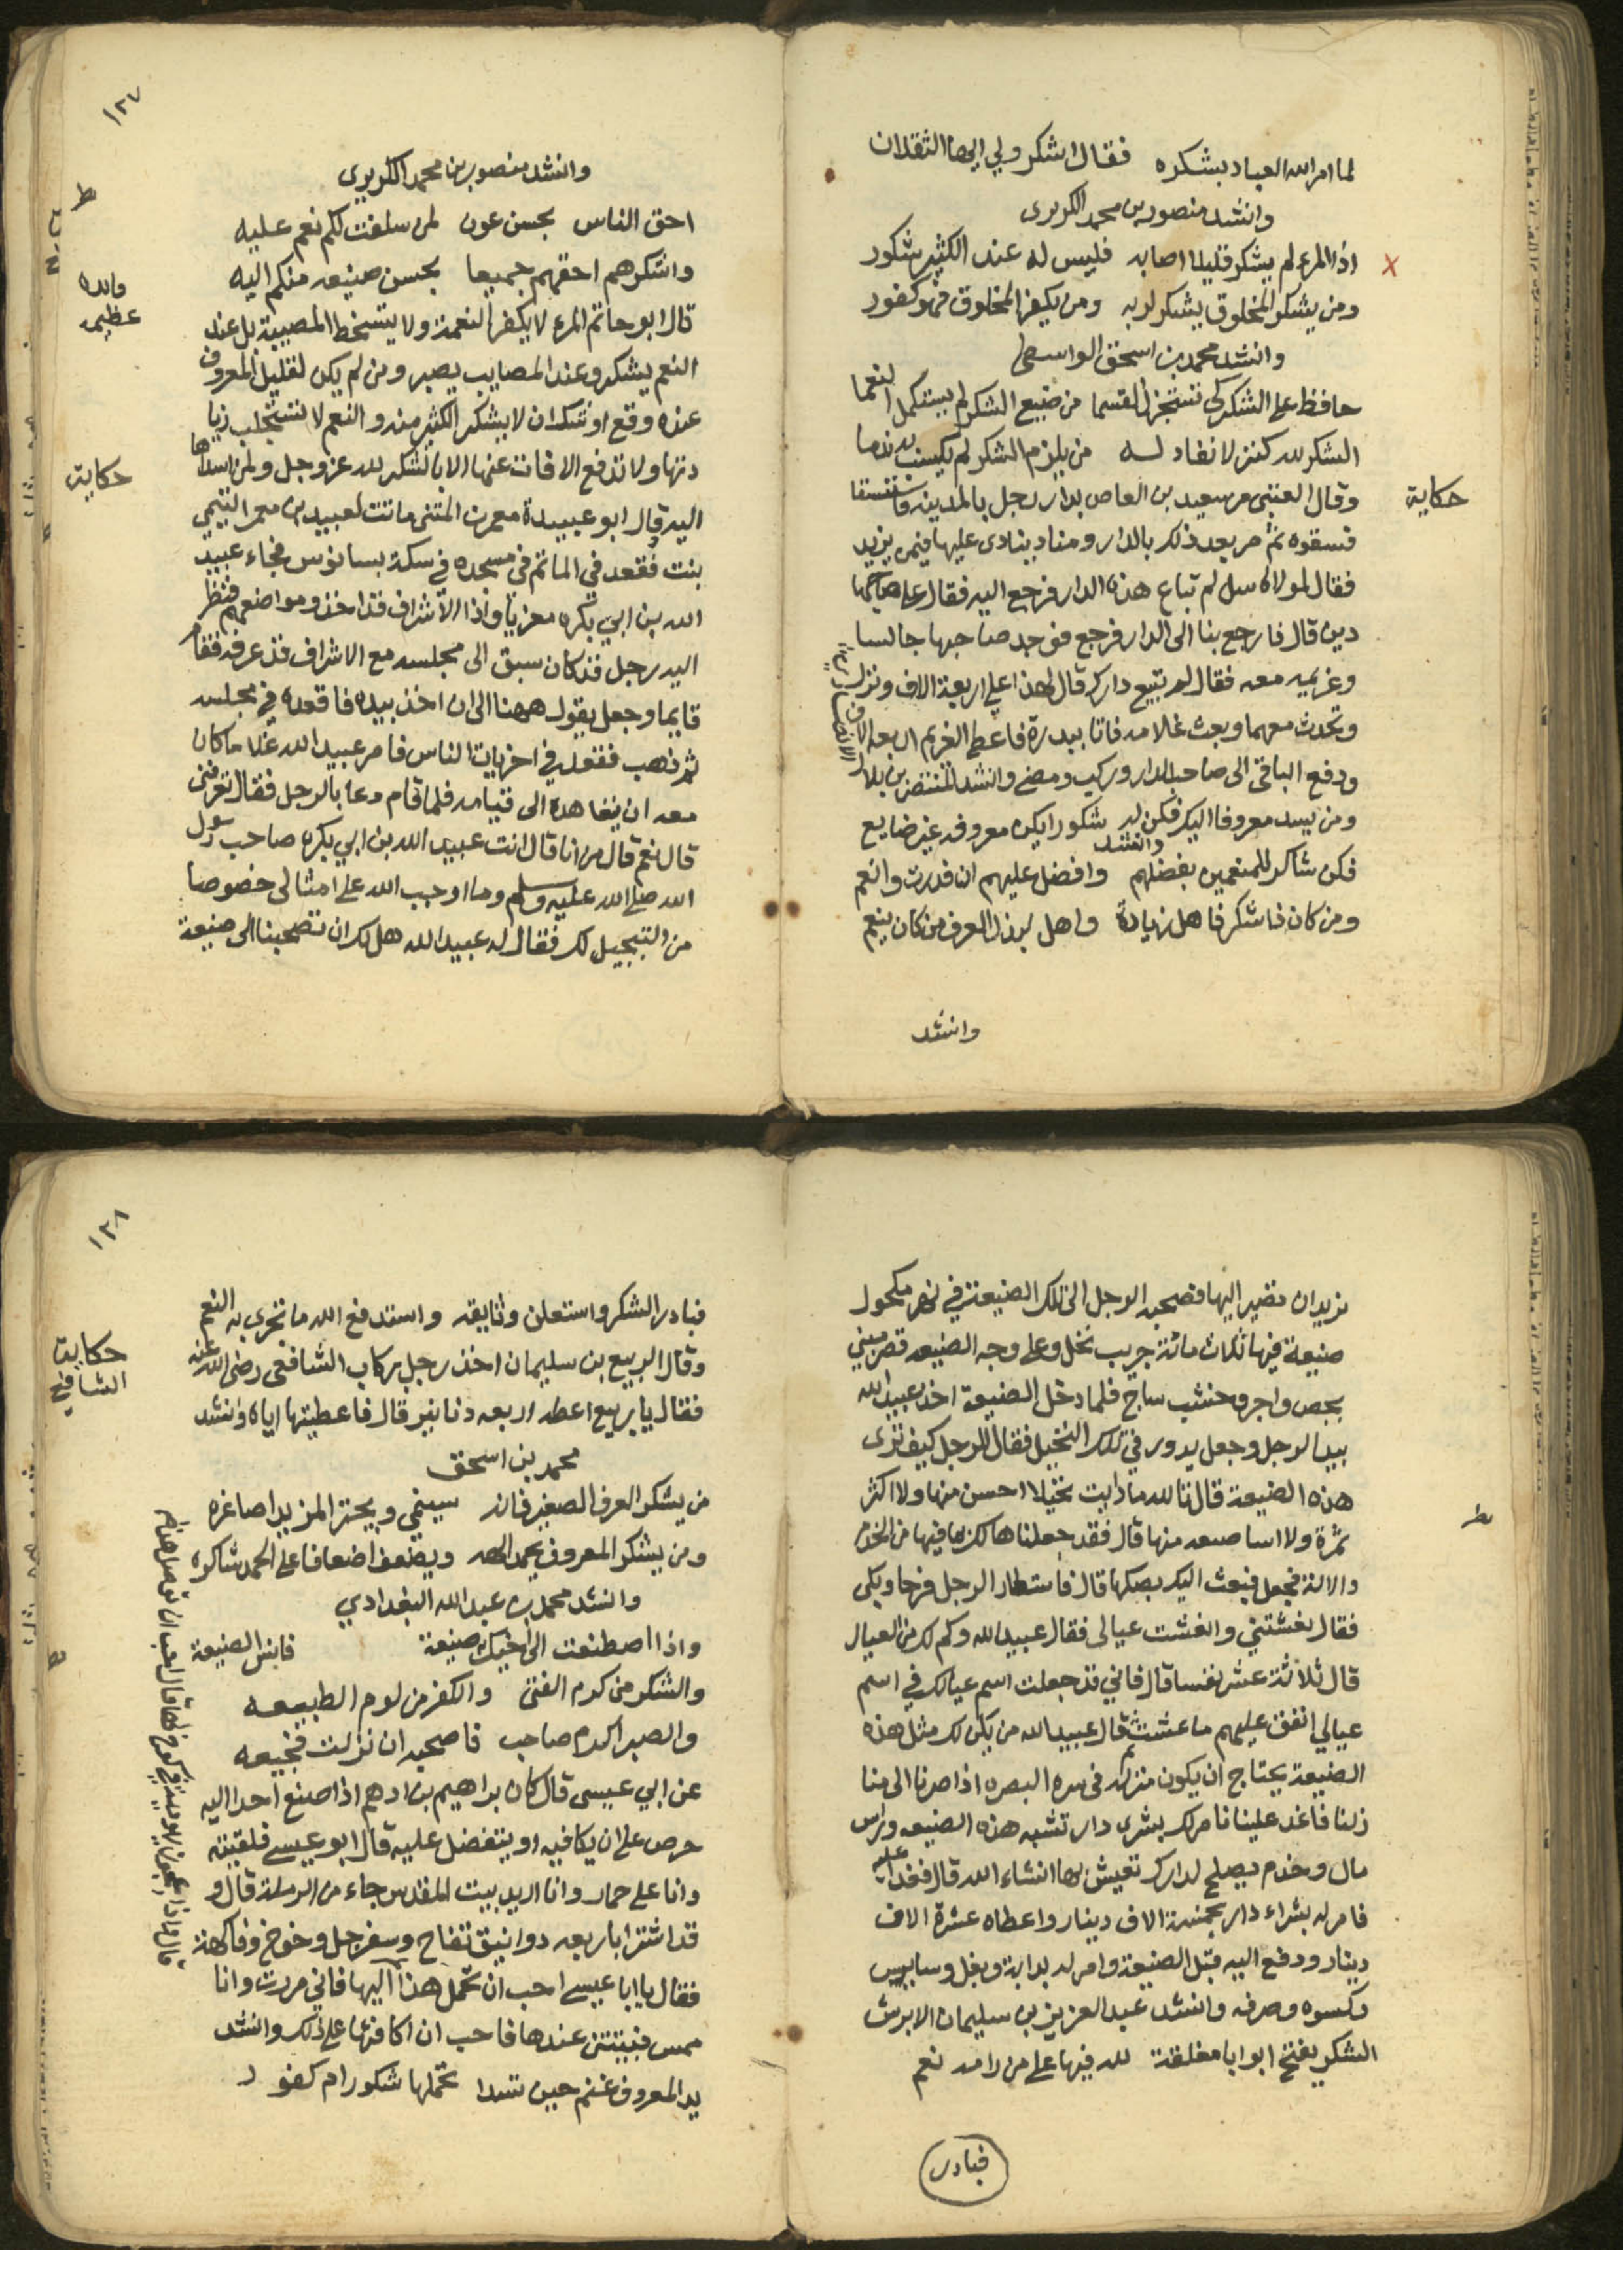 لما امر الله العباد بشكره فقال اشكرو لي ايها الثقلان
وانشد منصور بن محمد الكريرى
اذا المرء لم يشكر قليلا اصابه فليس له عند الكثير شكور
ومن يشكر المخلوق يشكر لربه ومن يكفر المخلوق فهو كفور
وانشد محمد بن اسحق الواسطى
حافظ على الشكر كي تستجزل القسما من ضيع الشكر لم يستكمل النعما
الشكر لله كنز لا نفاد له من يلزم الشكر لم يكسب به ندما
حكاية
وقال العتبى مر سعيد بن العاص بدار رجل بالمدينة فاستسقا
فسقوه ثم مر بعد ذلك بالدار ومناد ينادى عليها فيمن يزيد
فقال لمولاه سل لم تباع هذه الدار فرجع اليه فقال على صاحبها
دين قال فارجع بنا الى الدار فرجع فوجد صاحبها جالسا
وغريمه معه فقال لم تبيع دارك قال لهذا علي اربعة الاف ونزل
وتحدث معهما وبعث غلامه فاتا ببدرة فاعطى الغريم اربعة الاف
ودفع الباقي الى صاحب الدار وركب ومضى وانشد المنتصر بن بلال
الانصاري
ومن يسد معروفا اليك فكن له شكورا يكن معروفه غير ضايع
وانشد
فكن شاكر للمنعمين بفضلهم وافضل عليهم ان قدرت وانعم
ومن كان ذا شكر فاهل زيادة واهل لبذل العرف من كان ينعم
وانشد
١٢٧
وانشد منصور بن محمد الكريرى
احق الناس بحسن عون لمن سلفت لكم نعم عليه
واشكرهم احقهم جميعا بحسن صنيعه منكم اليه
فايده
عظيمه
قال ابو حاتم المرء لا يكفر النعمة ولا يتسخط المصيبة بل عند
النعم يشكر وعند المصايب يصبر ومن لم يكن لقليل المعروف
عنده وقع اوشك ان لا يشكر الكثير منه والنعم لا تستجلب زيا
دتها ولا تدفع الافات عنها الا بالشكر لله عز وجل ولمن اسداها
حكاية
اليه قال ابو عبيدة معمر بن المثنى ماتت لعبيد بن معمر التيمي
بنت فقعد في الماتم في مسجده في سكة بسانوس فجاء عبيد
الله بن ابي بكره معزيا واذا الاشراف قد اخذو مواضعهم فنظر
اليه رجل قد كان سبق الى مجلسه مع الاشراف قد عرفه فقام
قايما وجعل يقول ههنا الى ان اخذ بيده فاقعده في مجلسه
ثم ذهب فقعد في اخريات الناس فامر عبيد الله غلاما كان
معه ان يتعاهده الى قيامه فلما قام دعا بالرجل فقال تعرفني
قال نعم قال من انا قال انت عبيد الله بن ابي بكره صاحب رسول
الله صلى الله عليه وسلم وما اوجب الله على امثالى خصوصا
من التبجيل لك فقال له عبيد الله هل لك ان تصحبنا الى ضيعة
نريد ان نصير اليها فصحبه الرجل الى تلك الضيعة في نهر مكحول
ضيعة فيها ثلاث مائة جريب نخل وعلى وجه الضيعه قصر مبني
بجص واجر وخشب ساج فلما دخل الضيعة اخذ عبيد الله
بيد الرجل وجعل يدور في تلك النخيل فقال للرجل كيف ترى
هذه الضيعة قال تالله ما رايت نخيلا احسن منها ولا اكثر
ثمرة ولا اسا صعه منها قال فقد جعلناها لك بما فيها من الخدم
والالة فجعل فنبعث اليك بصكها قال فاستطار الرجل فرحا وبكى
فقال نعشتني وانعشت عيالى فقال عبيد الله وكم لك من العيال
قال ثلاثة عشر نفسا قال فاني قد جعلت اسم عيالك في اسم
عيالي انفق عليهم ما عشت ثم قال عبيد الله من يكن لك مثل هذه
الضيعة يحتاج ان يكون منزله في سره البصره اذا صرنا الى منا
زلنا فاغد علينا نامر لك بشرى دار تشبه هذه الضيعه وراس
مال وخدم يصلح لدارك تعيش بها انشاء الله قال فغدا عليه
فامر له بشراء دار بخمسة الاف دينار واعطاه عشرة الاف
دينار ودفع اليه قبل الضيعة وامر له بدابة وبغل وسايس
وكسوه وصرفه وانشد عبد العزيز بن سليمان الابرش
الشكر يفتح ابوابا مغلقة لله فيها على من رامه نعم
فبادر
١٢٨
فبادر الشكر واستغلن وثايقه واستدفع الله ما تجرى به النعم
حكاية
الشافعي
وقال الربيع بن سليمان اخذ رجل بركاب الشافعى رضى الله عنه
فقال يا ربيع اعطه اربعه دنانير قال فاعطيتها اياه وانشد
محمد بن اسحق
من يشكر العرف الصغير فانه سينمي ويحتز المزيد اصاغره
ومن يشكر المعروف يحمد الهه ويضعف اضعافا على الحمد شاكره
وانشد محمد بن عبد الله البغدادي
واذا اصطنعت الى اخيك صنيعة فانس الصنيعة
والشكر من كرم الفتى والكفر من لوم الطبيعه
والصبر اكرم صاحب فاصحبه ان نزلت فجيعه
عن ابي عيسى قال كان براهيم بن ادهم اذا صنع احد اليه
حرص على ان يكافيه او يتفضل عليه قال ابو عيسى فلقيته
وانا على حمار وانا اريد بيت المقدس جاء من الرملة قال و
قد اشترا باربعه دوانيق تفاح وسفرجل وخوخ وفاكهة
فقال يا ابا عيسى احب ان تحمل هذا اليها فاني مررت وانا
ممس فبيتتني عندها فاحب ان اكافئها على ذلك وانشد
يد المعروف غنم حين تسدا تحملها شكور ام كفور